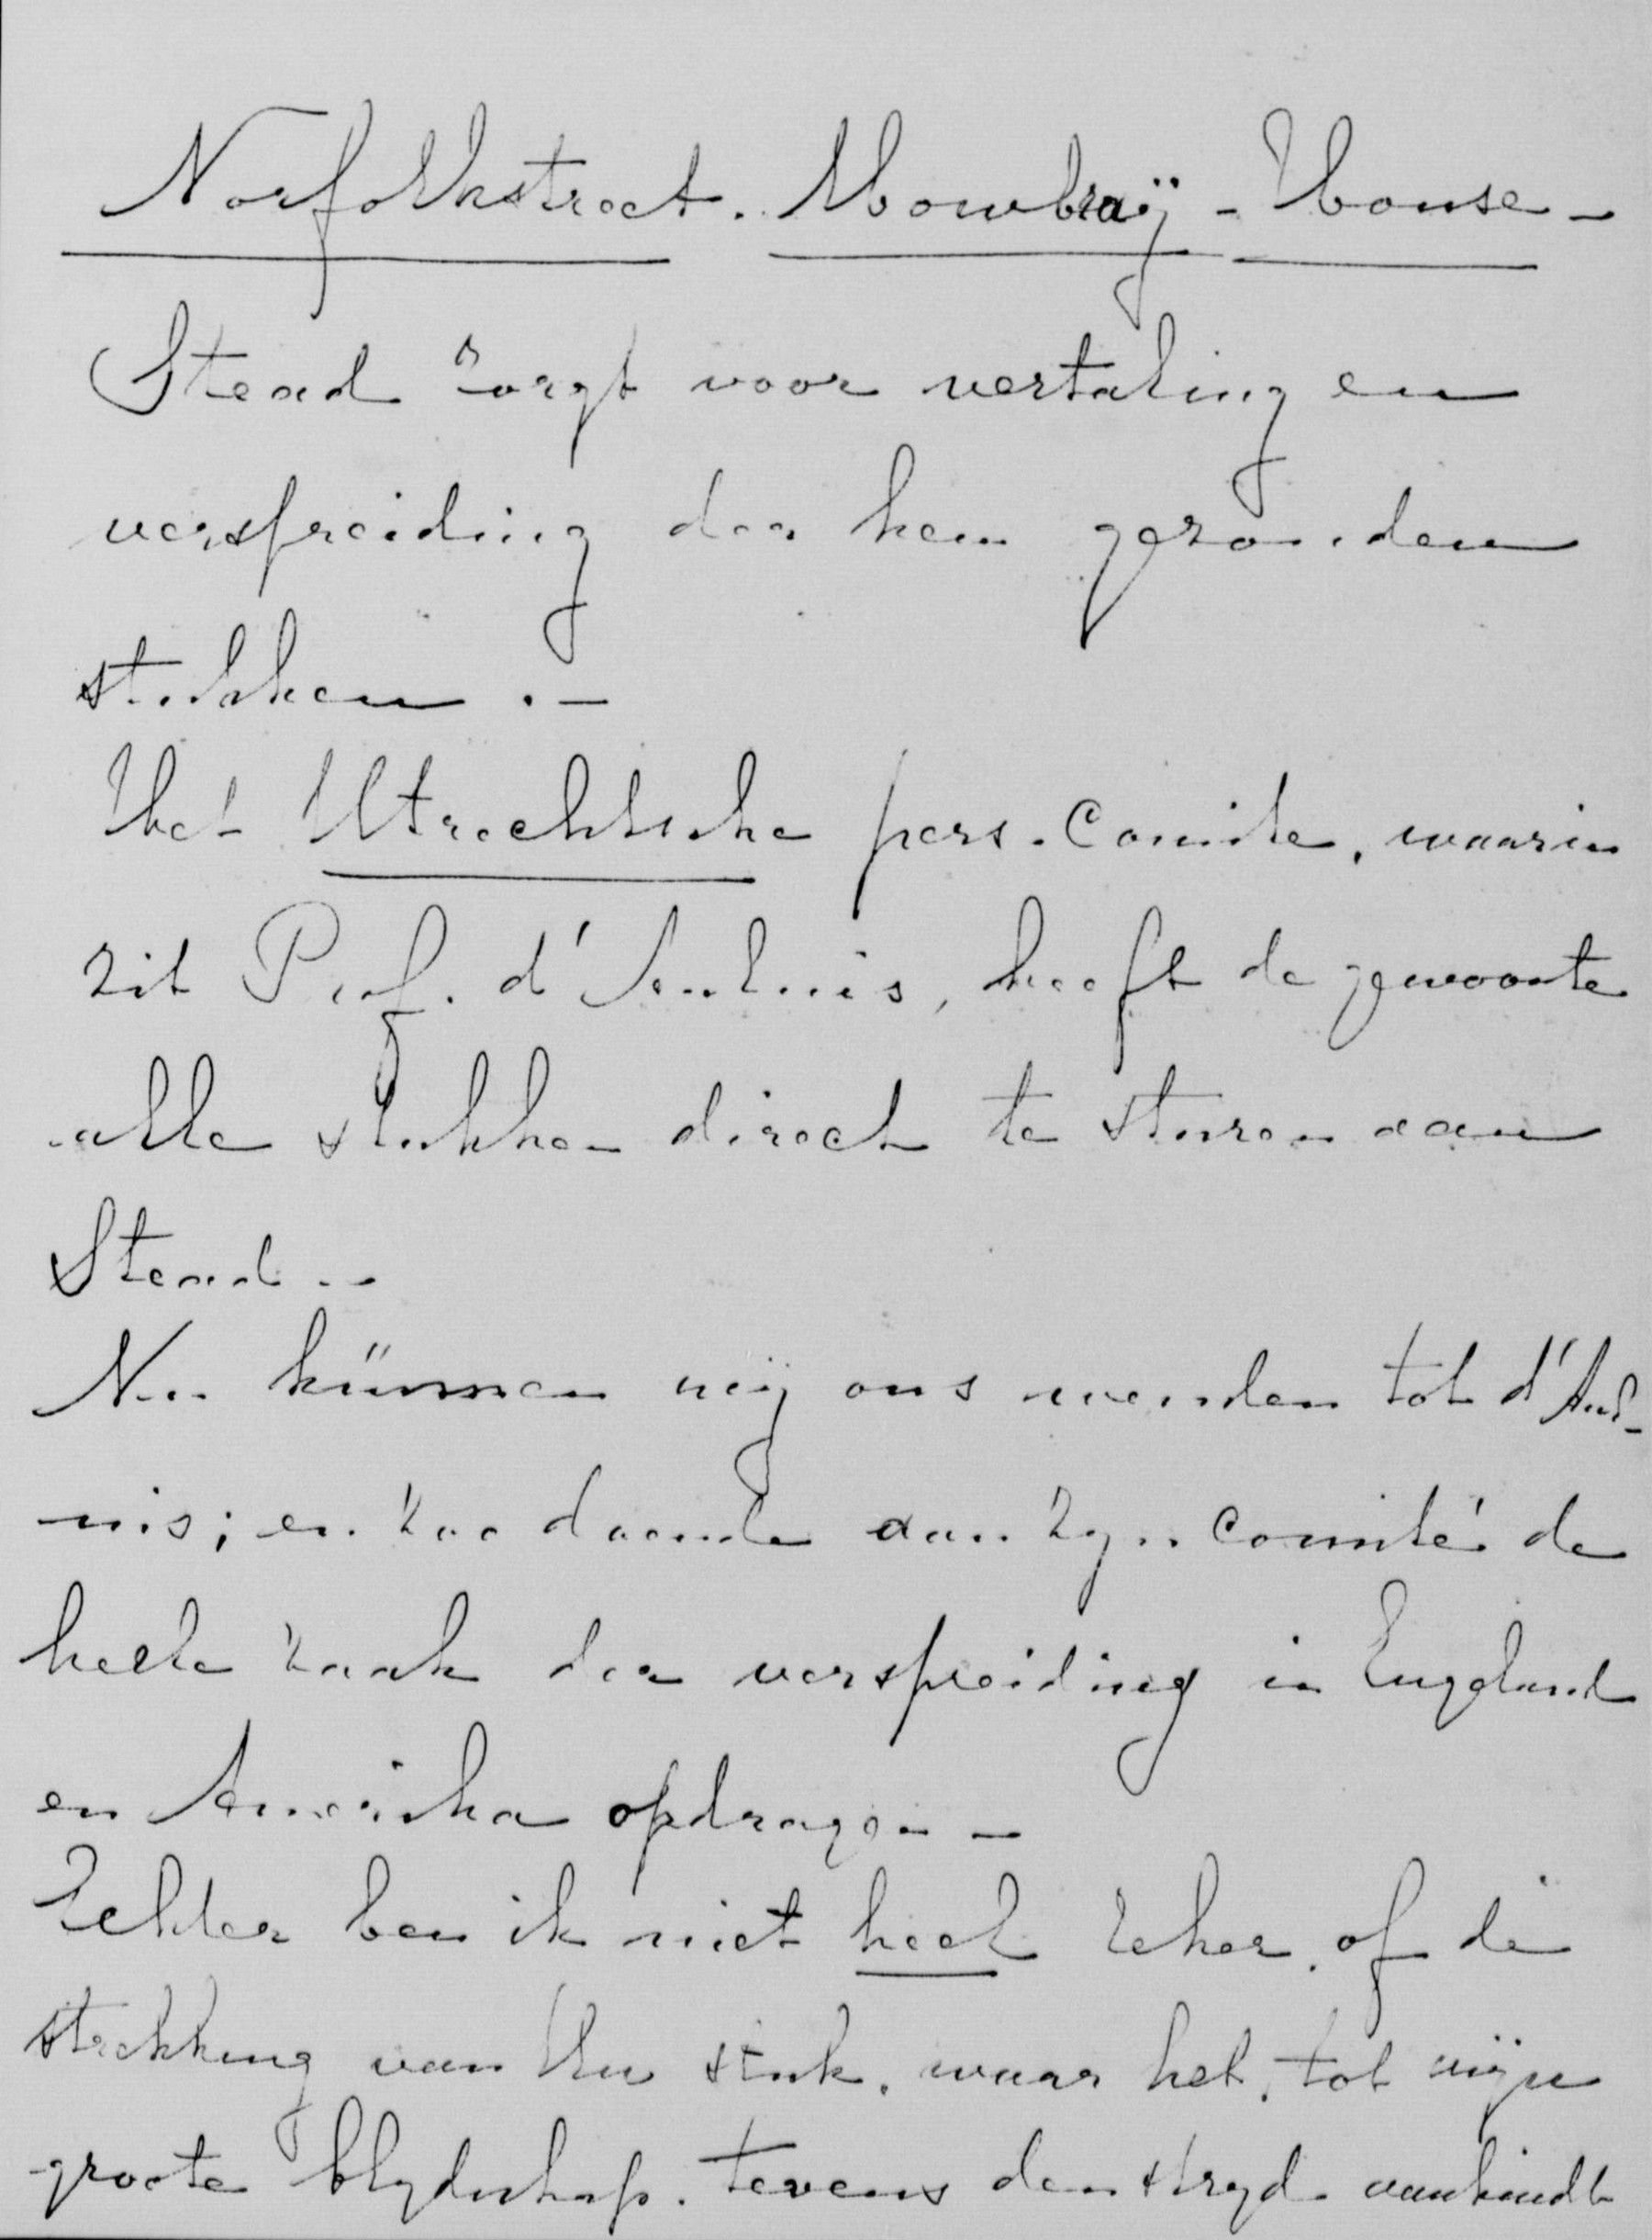 Norfolkstreet. Mowbraÿ-House-
Stead zorgt voor vertaling en
verspreiding der hem gezonden
stukken.-
Het Utrechtsche pers-Comite, waarin
zit Prof. d'Aulnis, heeft de gewoonte
alle stukken direct te sturen aan
Stead.-
Nu künnen wij ons wenden tot d'Aul-
nis; en zoo doende aan zyn comité de
heele zaak der verspreiding in Engeland
en Amerika opdragen-
Echter ben ik niet heel zeker, of de
strekking van Uw stuk, waar het, tot mijn
groote blydschap, tevens den stryd aanbindt